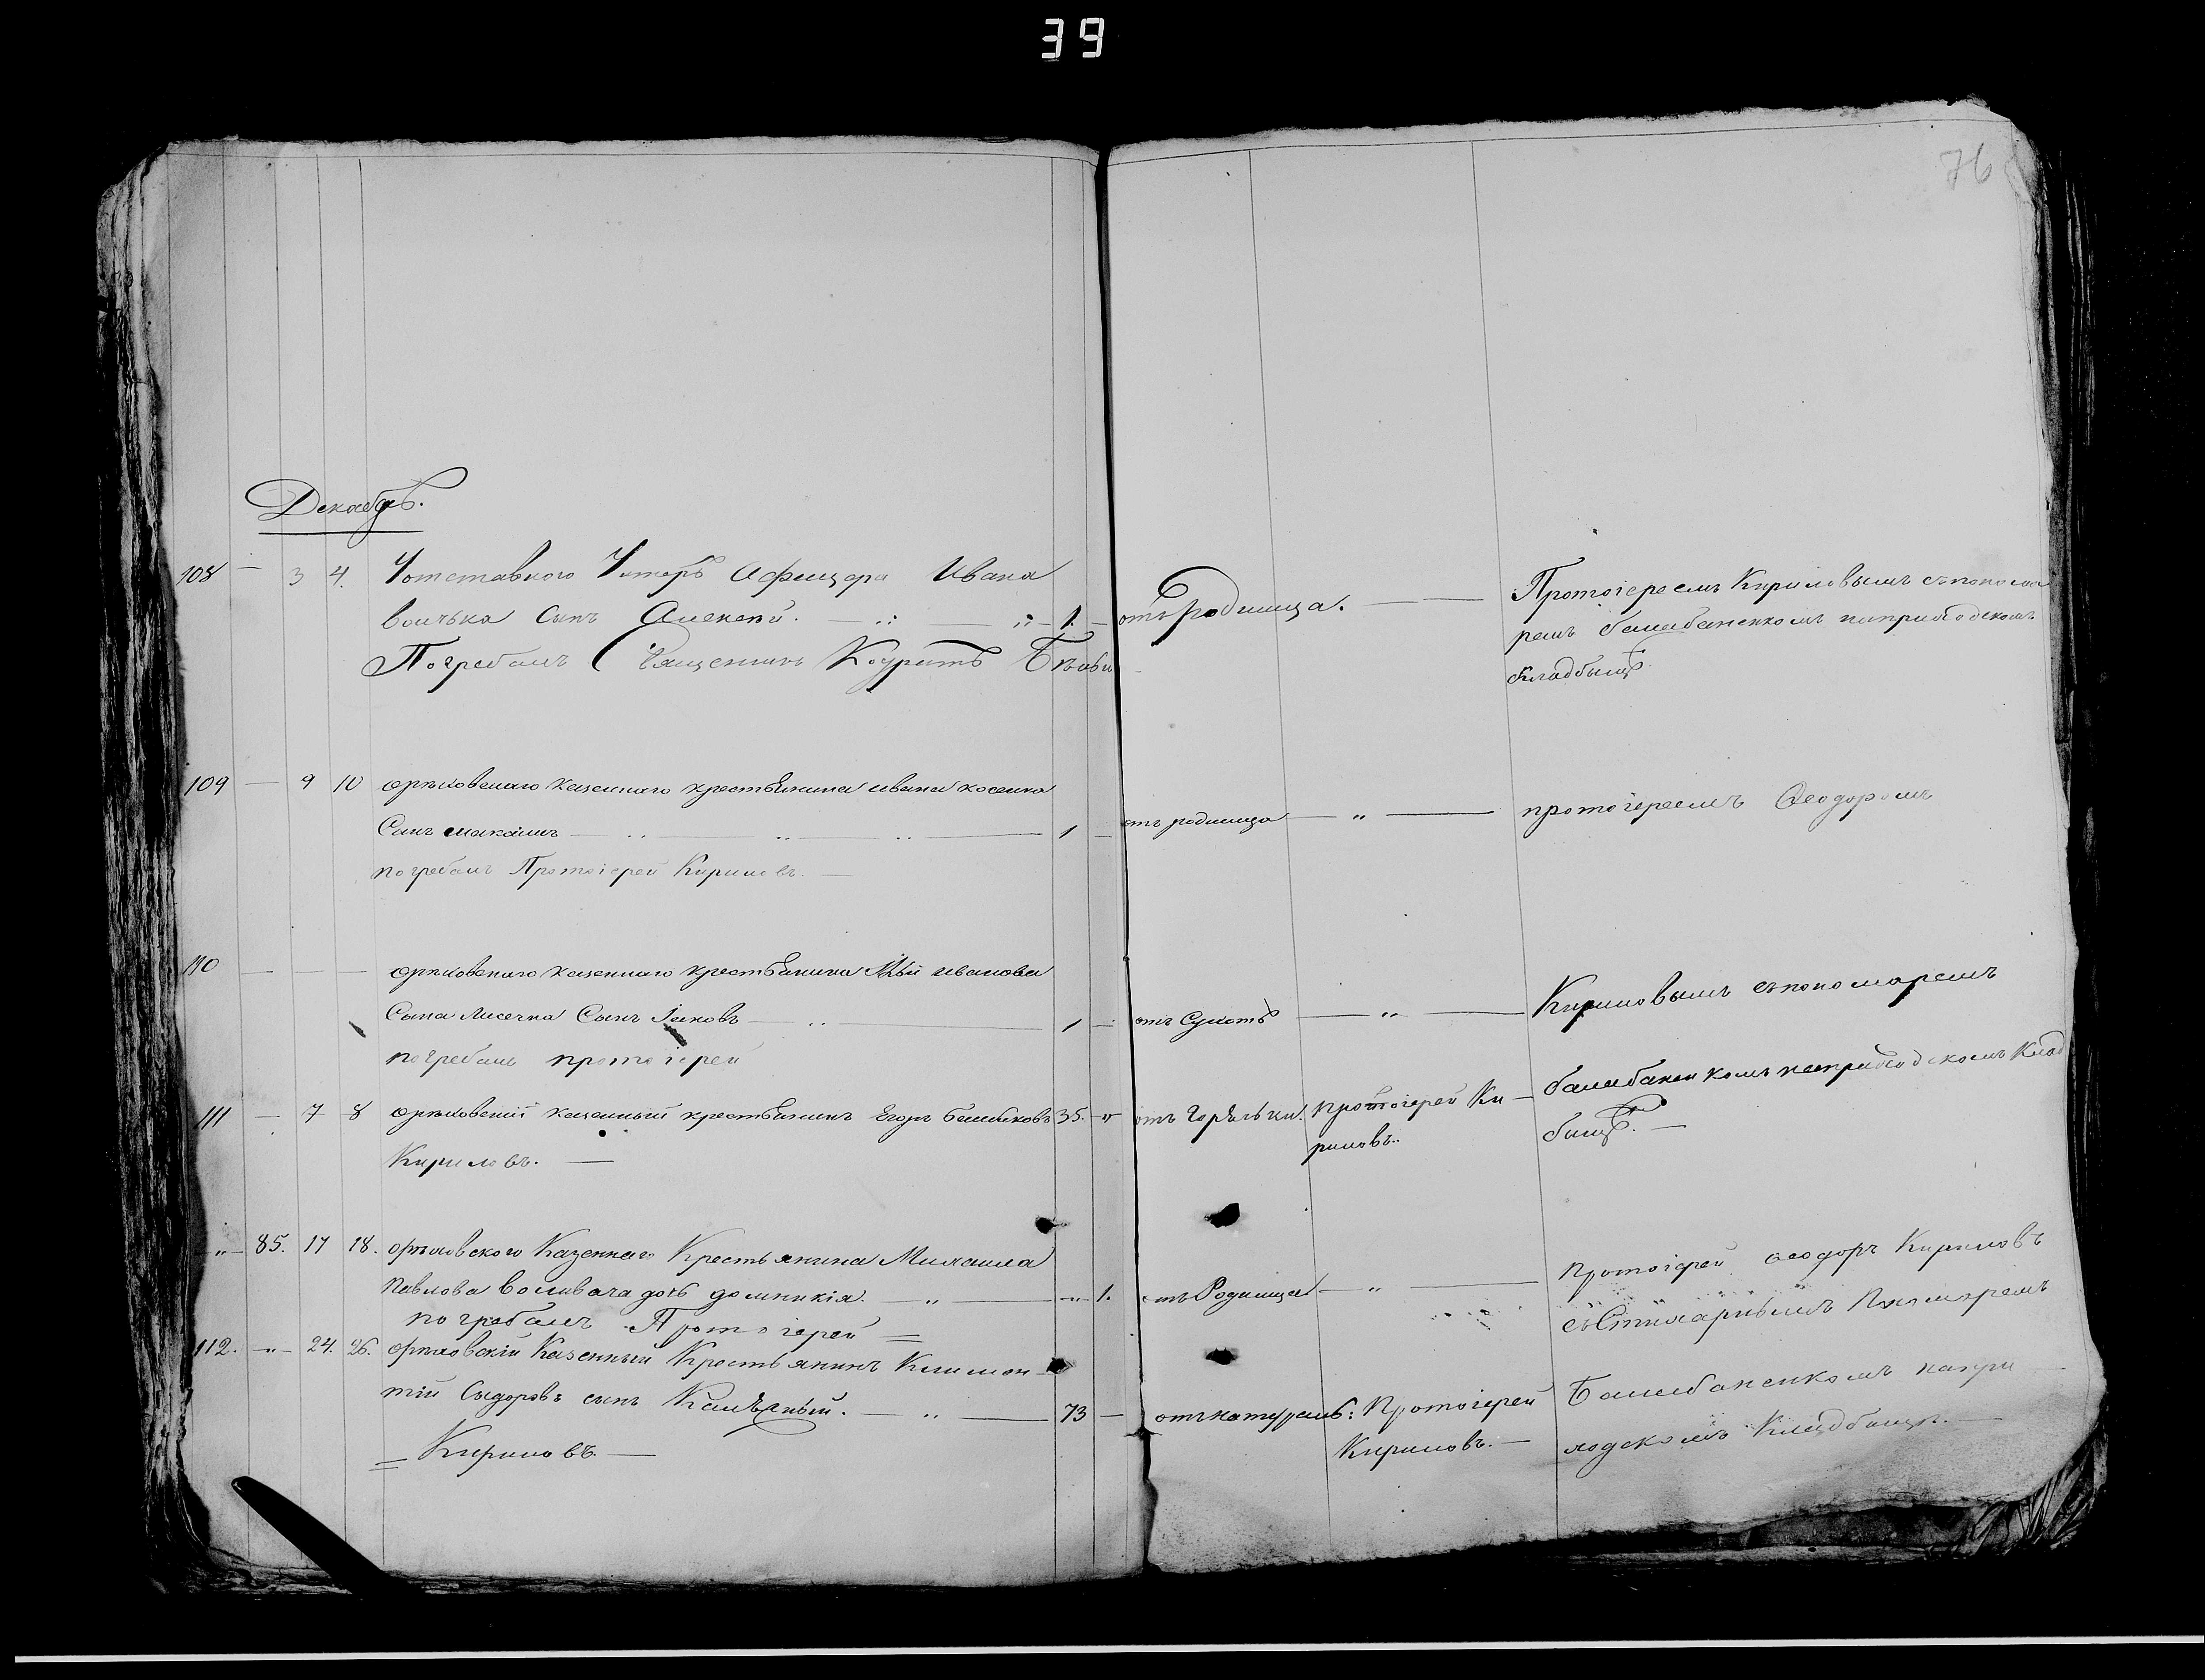 39
76
Декабрь.
108 — 3 4. Уотставного Унтеръ Афицера Ивана
сынъ Алексѣй. — 1. — отъ родимца. — Протоіереемъ Кириловымъ съ понома
ремъ балабаненкомъ наприходскомъ
Погребалъ Священникъ Кодратъ
кладбищѣ
109 — 9 10 орѣховскаго казеннаго крестьянина ивана косенка
Сынъ максимъ — 1 — отъ родимца — „ — протоіереемъ Ѳеодоромъ
погребалъ Протоіерей Кириловъ. —
110 — — — орѣховскаго казеннаго крестьянина иванова
Сына Лисечка Сынъ Іяковъ — 1 — отъ Сухотъ — „ — Кириловымъ съпономаремъ
погребалъ протоіерей
111 — 7 8 орѣховскій казенный крестьянинъ Егоръ 35. „ отъ Горѣлки. протоіерей Ки —
риловъ.
балабаненкомъ наприходскомъ Клад
бищѣ. —
Кириловъ. —
„ 85. 17 18. орѣховского Казеннаго Крестьянина Михаила
Павлова дочь домникія. — „ — „ — 1. отъ Родимца — „ — Протоіерей Ѳеодоръ Кириловъ
съ Стихарнымъ Пономаремъ
погребалъ Протоіерей =
112. — „ — 24. 26. орѣховскій Казенный Крестьянинъ Климен —
тій Сидоровъ сынъ — „ — 73 — отънатуральъ: Протоіерей
Кириловъ. —
Балабаненкомъ напри —
ходскомъ Кладбищѣ. —
= Кириловъ. —